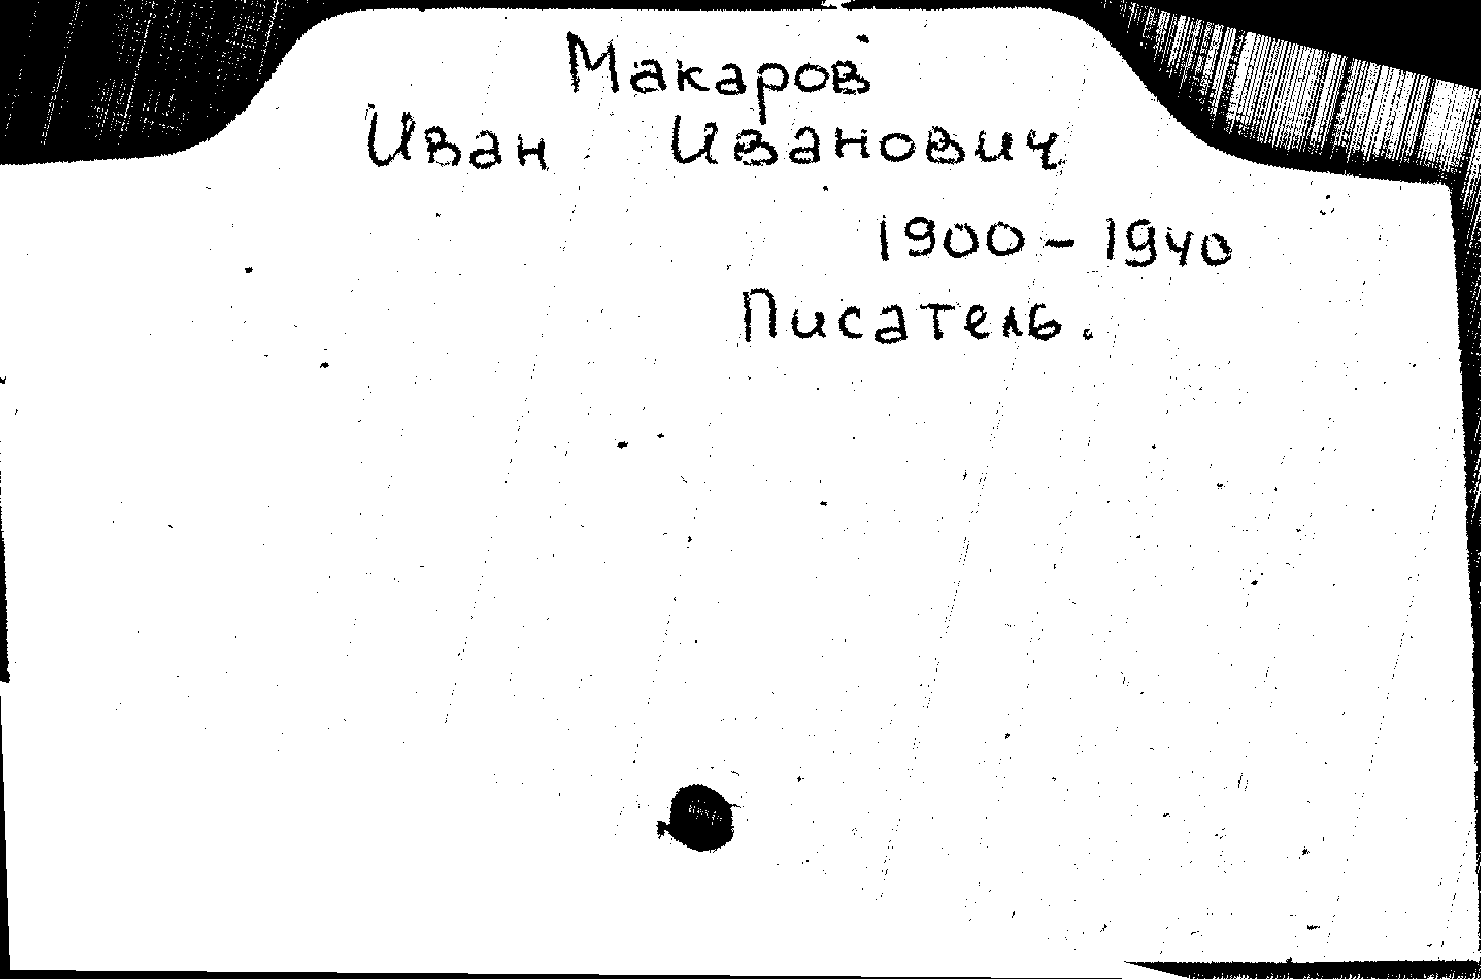 Макаров
Иван Иванович
1900 - 1940
Писатель.